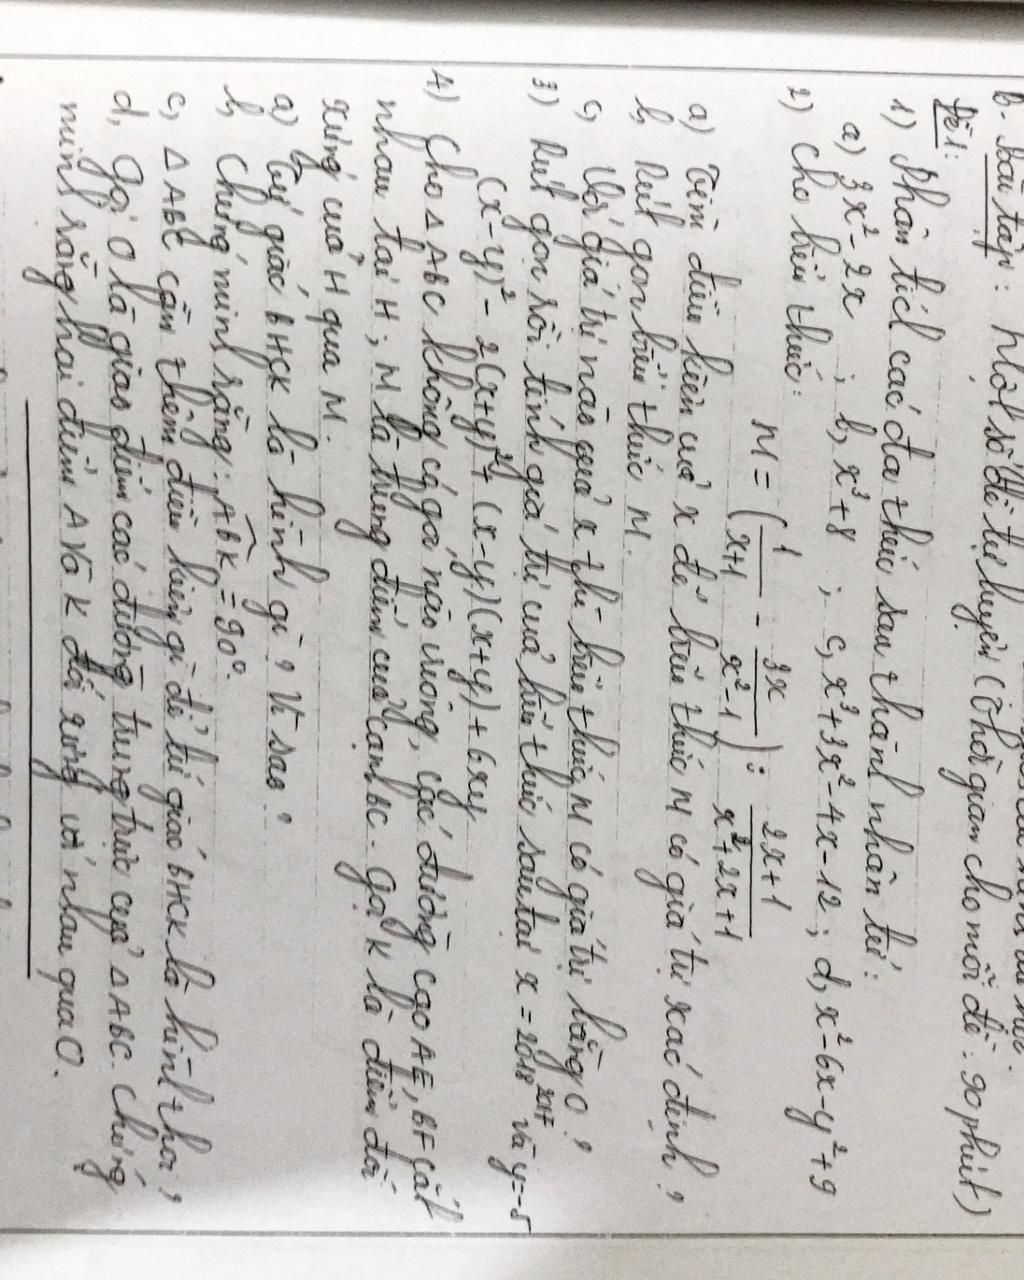 B- Bài tập: Một số đề tự luyện (Thời gian cho mỗi đề: 90 phút)
Đề 1:
1) Phân tích các đa thức sau thành nhân tử:
a) 3x² - 2x ; b, x³+8 ; c, x³+3x²-4x-12 ; d, x²-6x-y²+9
2) Cho biểu thức:
M = (1/(x+1) - 3x/(x²-1)) : (2x+1)/(x²+2x+1)
a) Tìm điều kiện của x để biểu thức M có giá trị xác định ?
b, Rút gọn biểu thức M.
c, Với giá trị nào của x thì biểu thức M có giá trị bằng 0 ?
3) Rút gọn rồi tính giá trị của biểu thức sau tại x = 2018²⁰¹⁷ và y=-5
(x-y)² - 2(x+y)² + (x-y)(x+y) + 6xy
4) Cho Δ ABC không có góc nào vuông, các đường cao AE, BF cắt
nhau tại H ; M là trung điểm của cạnh BC. Gọi K là điểm đối
xứng của H qua M.
a) Tứ giác BHCK là hình gì ? Vì sao ?
b, Chứng minh rằng: ABK = 90°.
c, Δ ABC cần thêm điều kiện gì để tứ giác BHCK là hình thoi ?
d, Gọi O là giao điểm các đường trung trực của Δ ABC. Chứng
minh rằng hai điểm A và K đối xứng với nhau qua O.